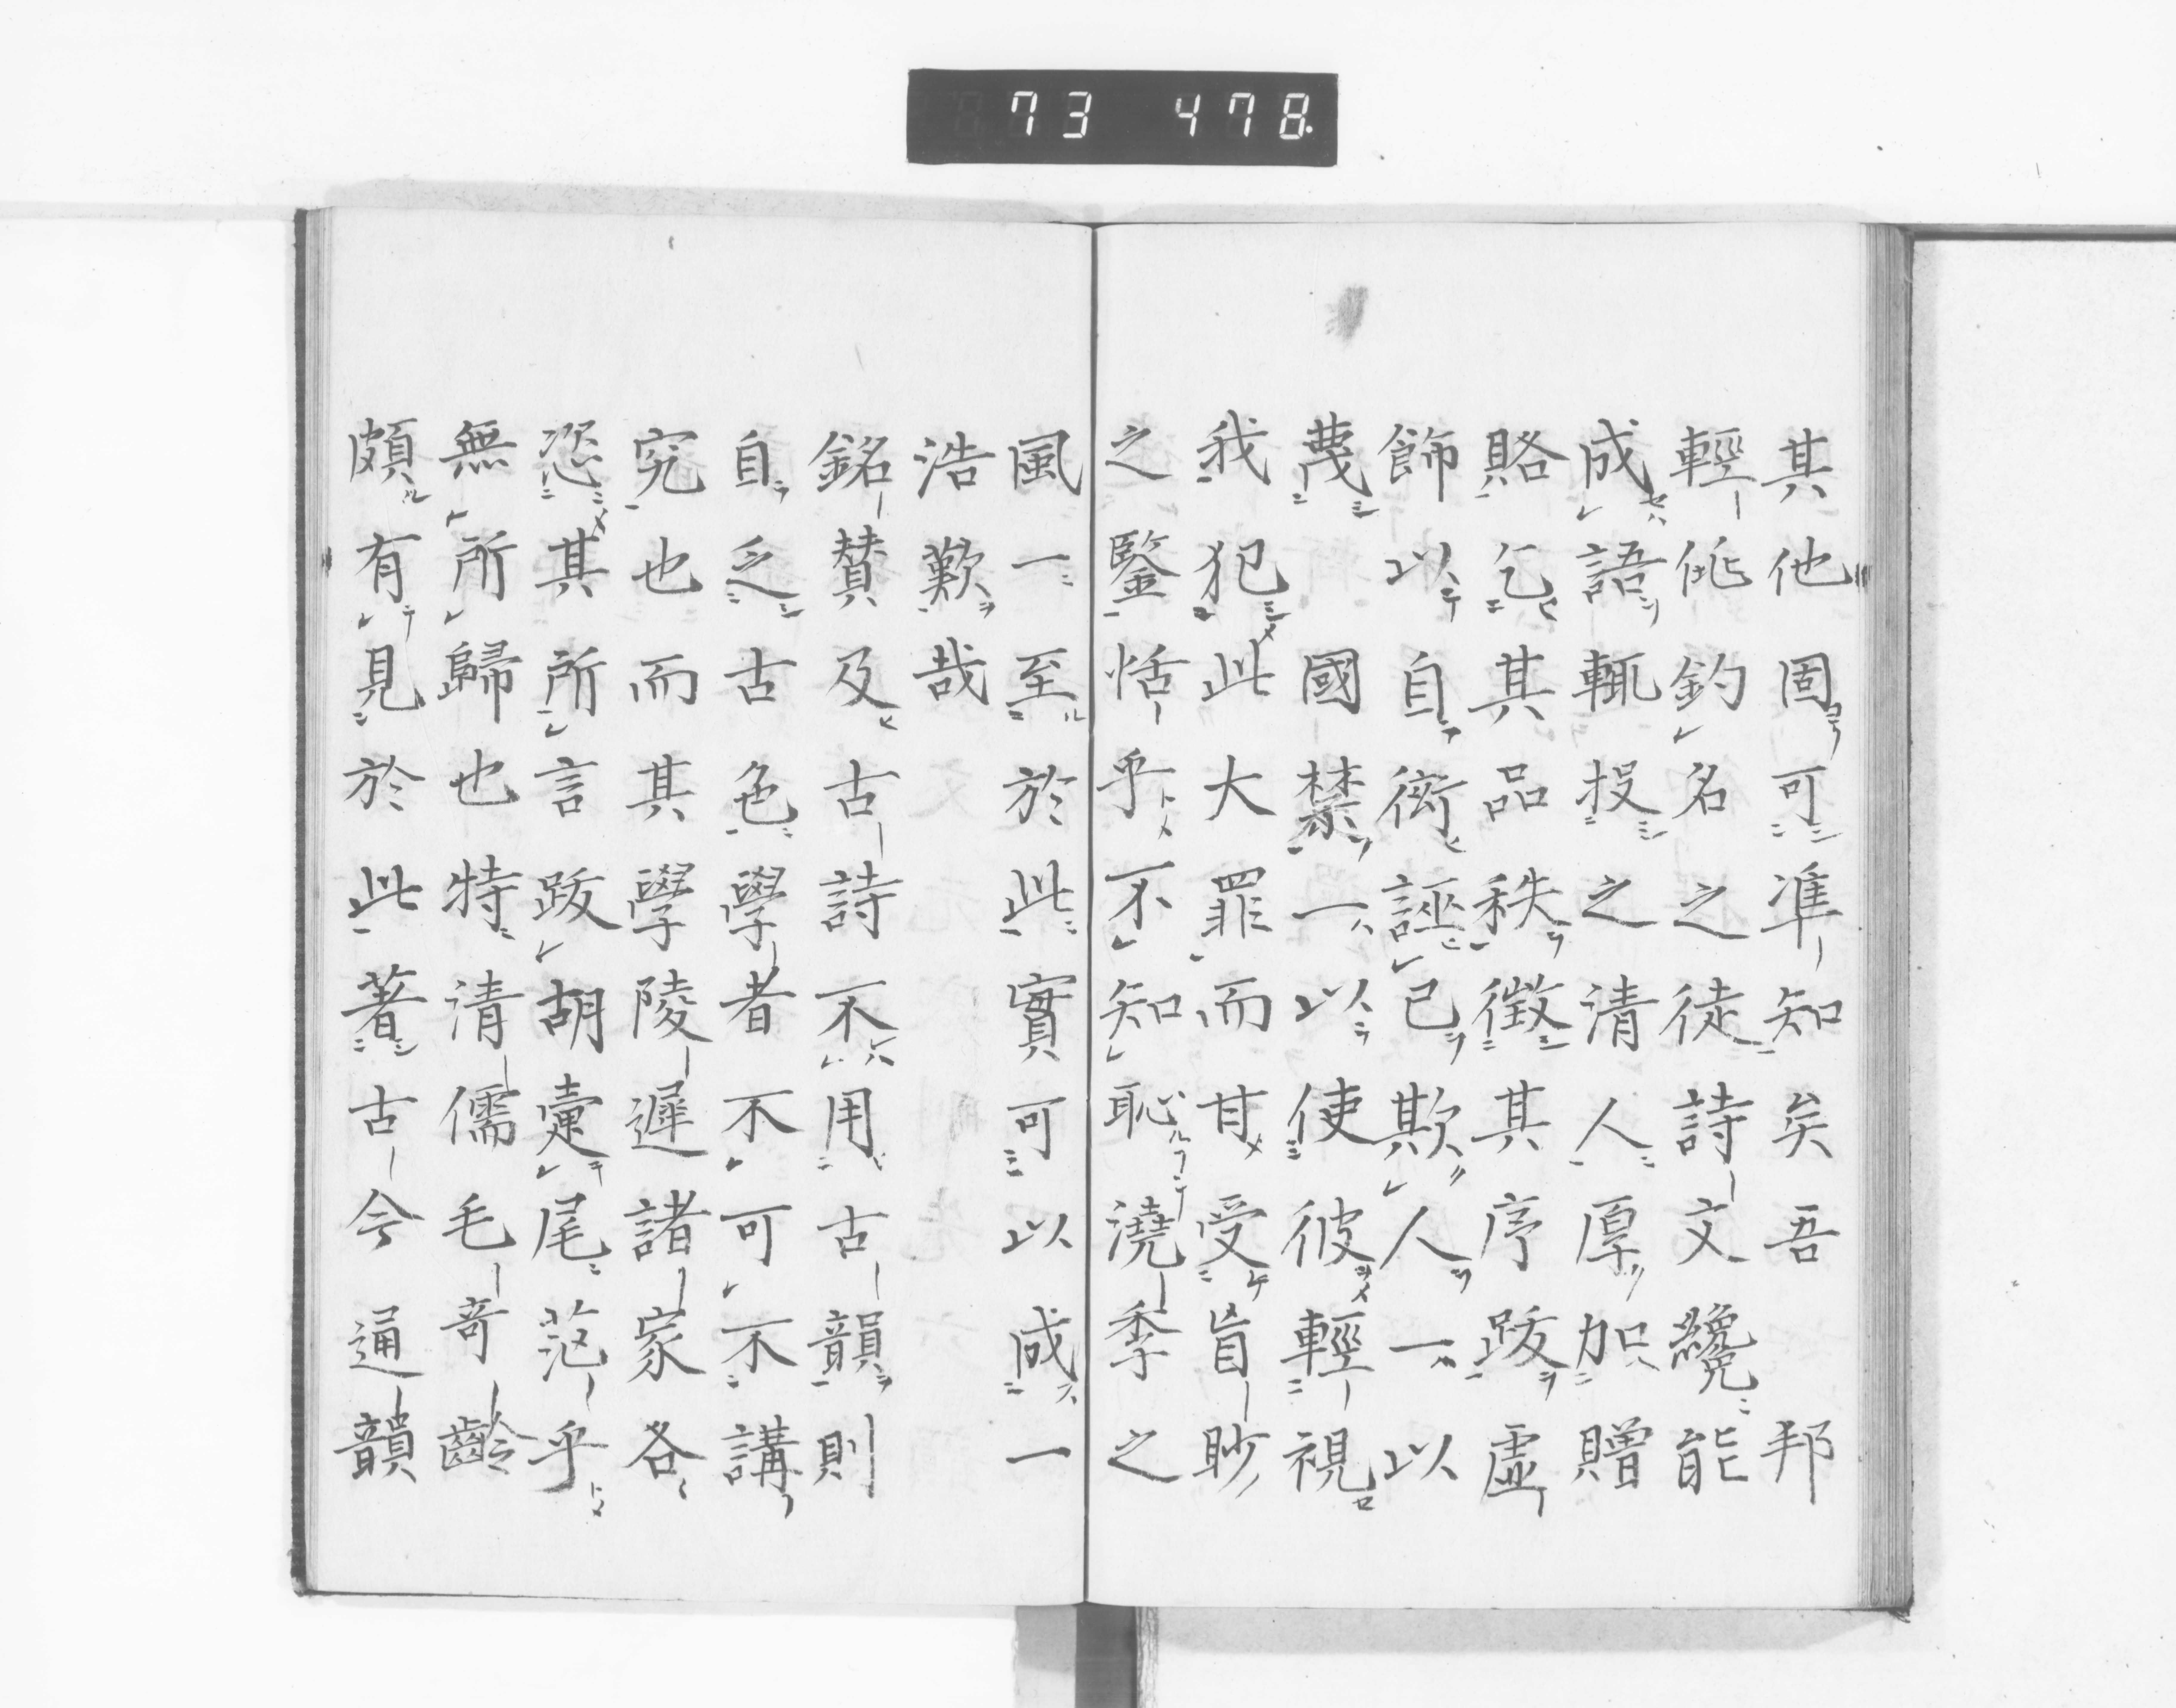 73 478
其他固可準知矣吾邦
輕佻釣名之徒詩文纔能
成語輒投之清人厚加贈
賂乞其品秩徵其序跋虛
飾以自衒誣己欺人一以
蔑國禁一以使彼輕視
我犯此大罪而甘受盲眇
之鑒恬乎不知恥澆季之
風一至於此實可以成一
浩歎哉
銘贊及古詩不用古韻則
自乏古色學者不可不講
究也而其學陵遲諸家各
恣其所言跋胡疐尾茫乎
無所歸也特清儒毛奇齡
頗有見於此著古今通韻